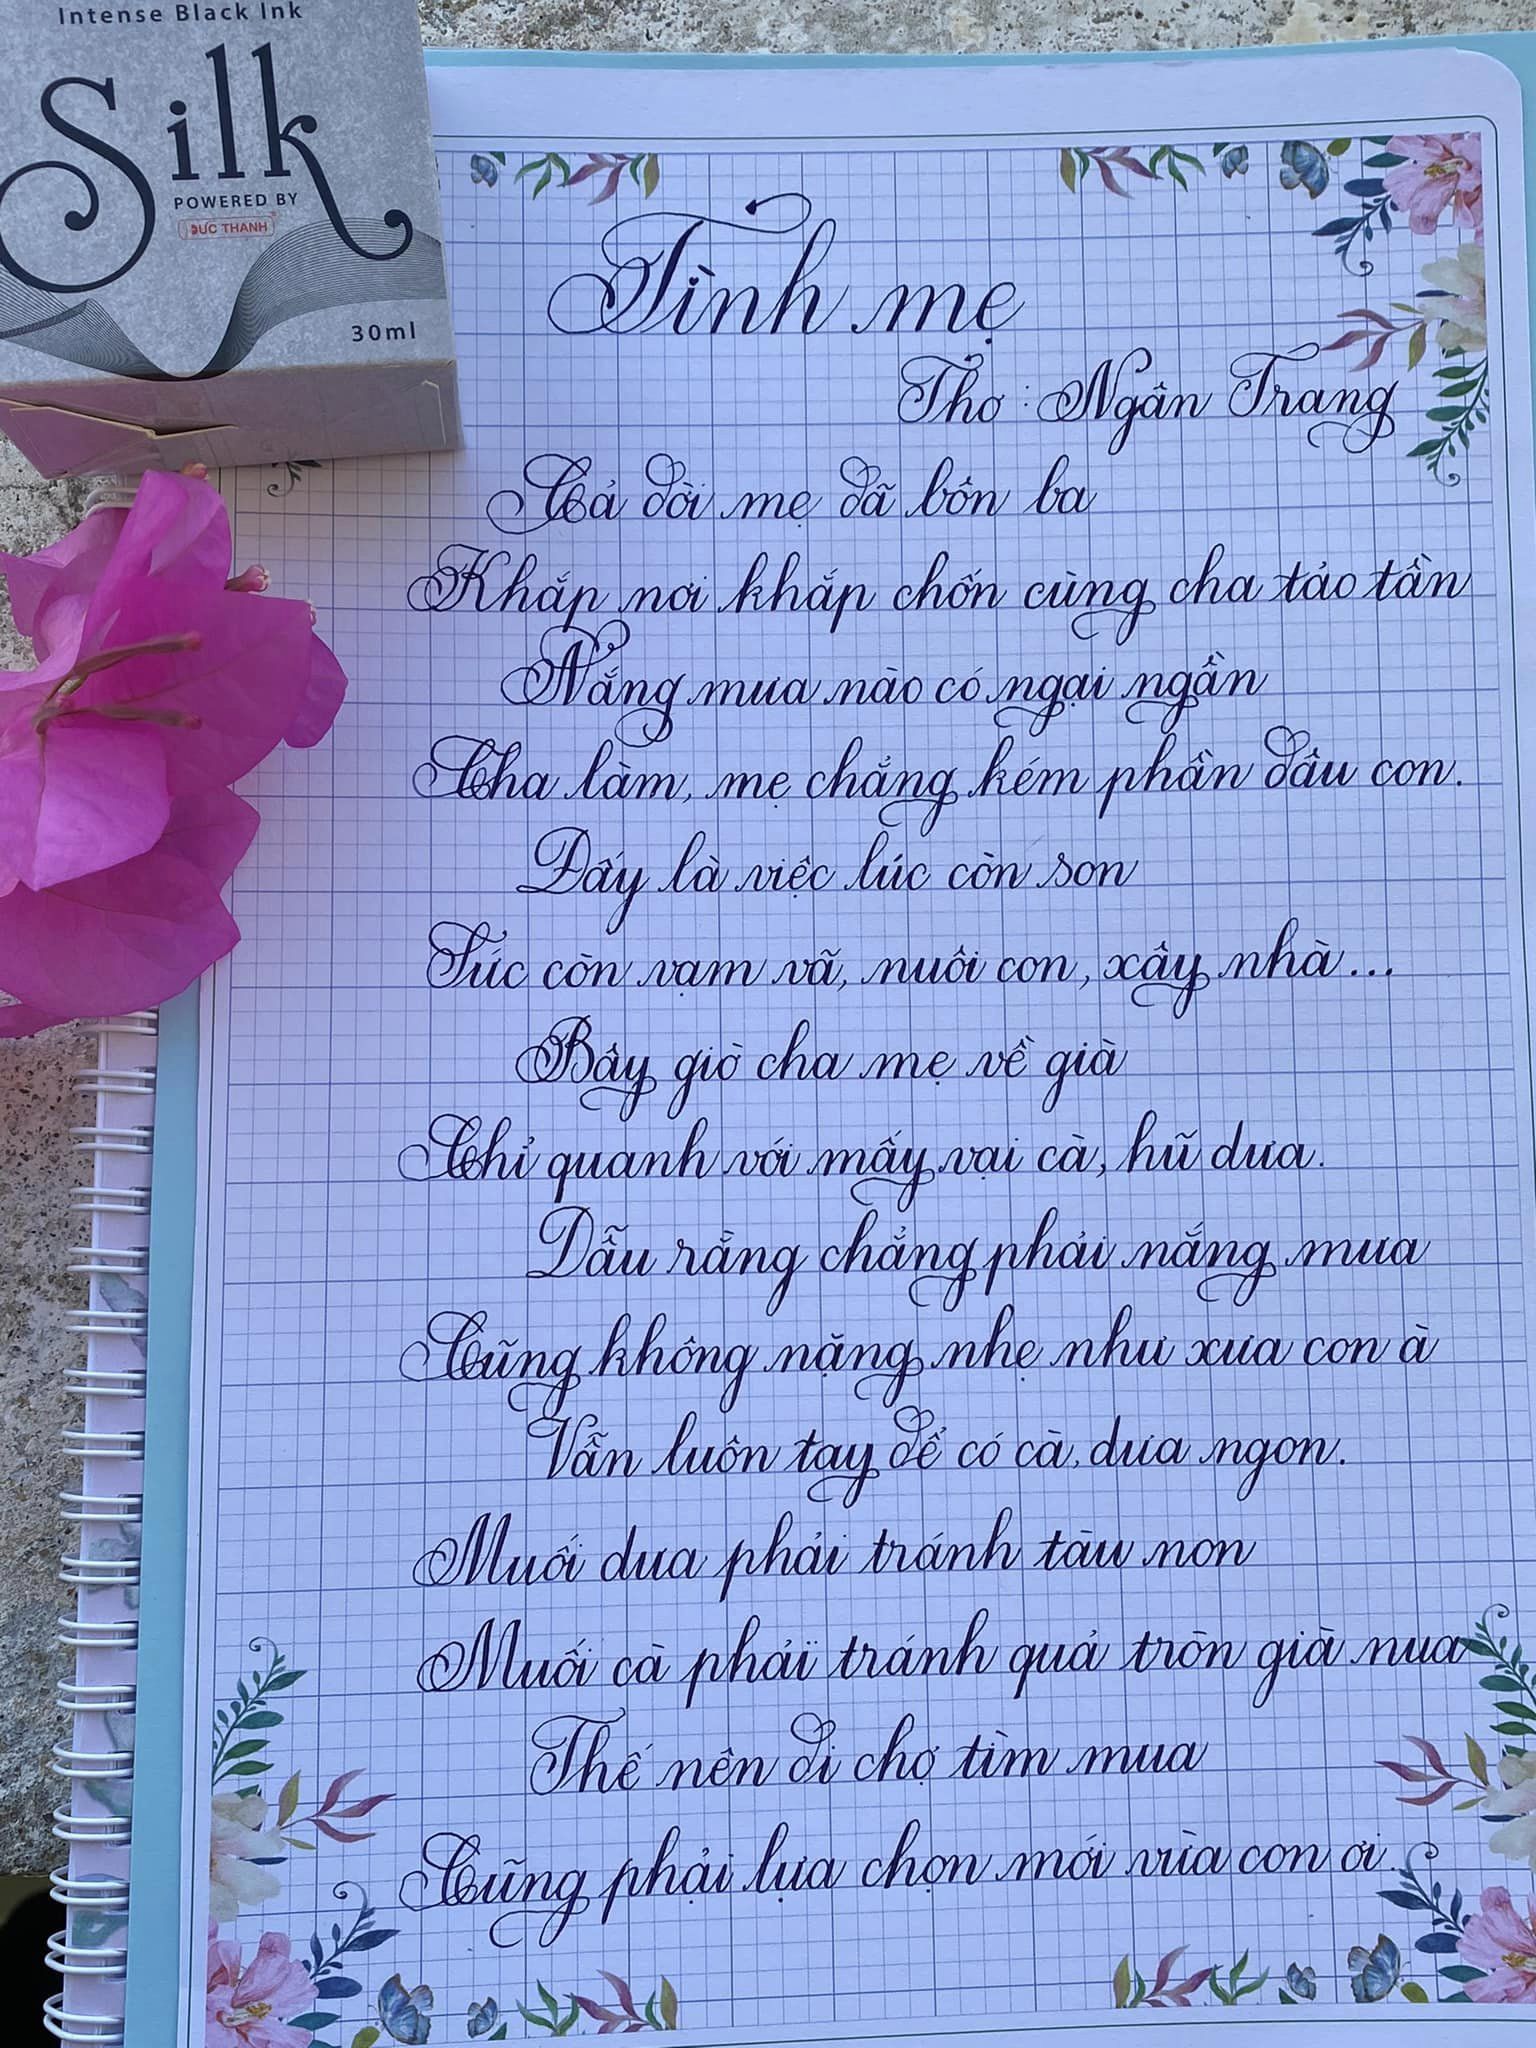 Intense Black Ink
Silk
POWERED BY
ĐỨC THANH
30ml
Tình mẹ
Thơ: Ngân Trang
Cả đời mẹ đã bôn ba
Khắp nơi khắp chốn cùng cha tảo tần
Nắng mưa nào có ngại ngần
Cha làm, mẹ chẳng kém phần đâu con.
Đấy là việc lúc còn son
Sức còn vạm vỡ, nuôi con, xây nhà...
Bây giờ cha mẹ về già
Chỉ quanh với mấy vại cà, hũ dưa.
Dẫu rằng chẳng phải nắng mưa
Cũng không nặng nhẹ như xưa con à
Vẫn luôn tay để có cà, dưa ngon.
Muối dưa phải tránh tàu non
Muối cà phải tránh quả tròn già nua
Thế nên đi chợ tìm mua
Cũng phải lựa chọn mới vừa con ơi.